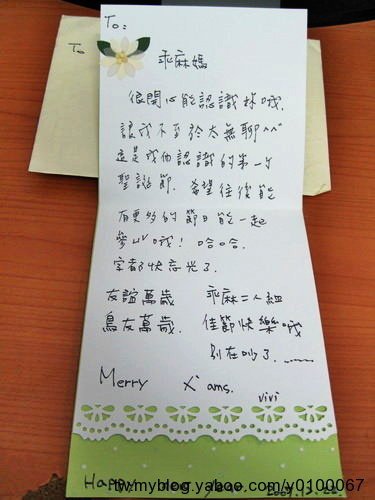 To
To:
乖麻媽
很開心能認識妳哦.
讓我不至於太無聊^^
這是我們認識的第一個
聖誕節. 希望往後能
有更多的節日能一起
參與哦! 哈哈.
字都快忘光了.
友誼萬歲 乖麻二人組
鳥友萬歲. 佳節快樂哦
別在叫了.
Merry X'ams.
vivi
Happy New Year. 2007.12.22.
tw.myblog.yahoo.com/y0100067